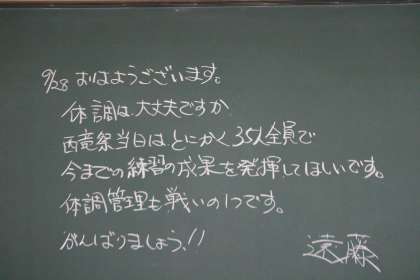 9/28 おはようございます。
体調は大丈夫ですか
西竜祭当日はとにかく35人全員で
今までの練習の成果を発揮してほしいです。
体調管理も戦いの1つです。
がんばりましょう!!
遠藤